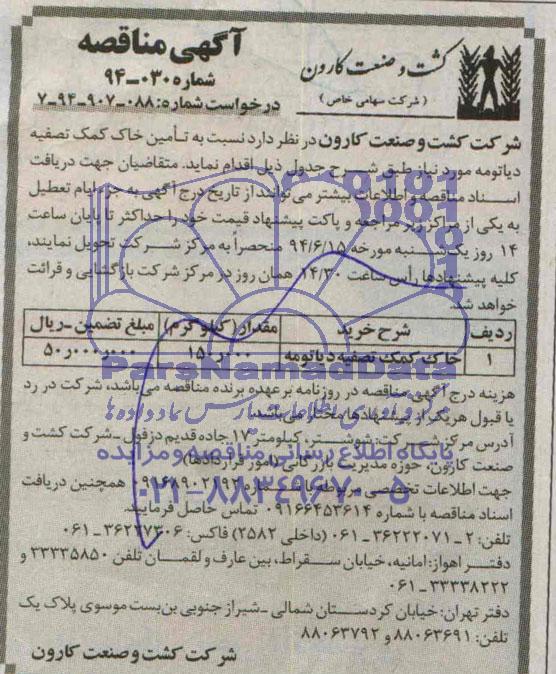 آگهی مناقصه
شماره ۰۳۰-۹۴
درخواست شماره: ۰۸۸-۹۰۷-۹۴-۷
کشت و صنعت کارون
(شرکت سهامی خاص)
شرکت کشت و صنعت کارون در نظر دارد نسبت به تأمین خاک کمک تصفیه
دیاتومه مورد نیاز طبق شرح جدول ذیل اقدام نماید. متقاضیان جهت دریافت
اسناد مناقصه و اطلاعات بیشتر می‌توانند از تاریخ درج آگهی به جز ایام تعطیل
به یکی از مراکز زیر مراجعه و پاکت پیشنهاد قیمت خود را حداکثر تا پایان ساعت
۱۴ روز یکشنبه مورخه ۹۴/۶/۱۵ منحصراً به مرکز شرکت تحویل نمایند،
کلیه پیشنهادها رأس ساعت ۱۴/۳۰ همان روز در مرکز شرکت بازگشایی و قرائت
خواهد شد.
ردیف شرح خرید مقدار (کیلو گرم) مبلغ تضمین-ریال
۱ خاک کمک تصفیه دیاتومه ۱۵۰ر۰۰۰ ۵۰ر۰۰۰ر۰۰۰
هزینه درج آگهی مناقصه در روزنامه بر عهده برنده مناقصه می‌باشد، شرکت در رد
یا قبول هریک از پیشنهادها مختار می‌باشد.
آدرس مرکز شرکت: شوشتر، کیلومتر ۱۷ جاده قدیم دزفول-شرکت کشت و
صنعت کارون، حوزه مدیریت بازرگانی (امور قراردادها)
جهت اطلاعات تخصصی مربوطه با شماره همچنین دریافت
اسناد مناقصه با شماره ۰۹۱۶۶۴۵۳۶۱۴ تماس حاصل فرمایید.
تلفن: ۲-۳۶۲۲۲۰۷۱-۰۶۱ (داخلی ۲۵۸۲) فاکس: ۳۶۲۳۷۳۰۶-۰۶۱
دفتر اهواز: امانیه، خیابان سقراط، بین عارف و لقمان تلفن ۳۳۳۳۵۸۵۰ و
۳۳۳۳۸۲۲۲-۰۶۱
دفتر تهران: خیابان کردستان شمالی-شیراز جنوبی بن‌بست موسوی پلاک یک
تلفن: ۸۸۰۶۳۶۹۱ و ۸۸۰۶۳۷۹۲
شرکت کشت و صنعت کارون
ParsNamadData
پایگاه اطلاع رسانی مناقصه و مزایده
۰۲۱-۸۸۳۴۹۶۷۰-۵